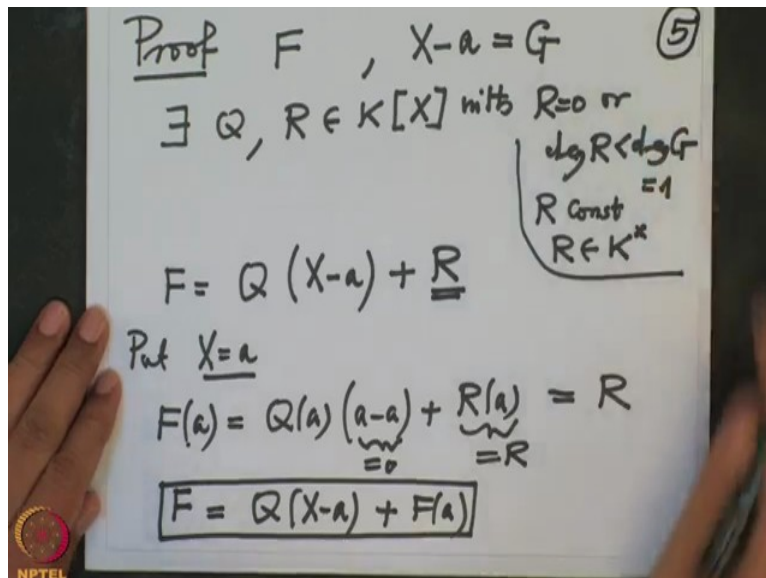 Proof F , X-a = G ⑤
∃ Q, R ∈ K[X] with R=0 or
deg R < deg G
=1
R const
R ∈ K^×
F = Q (X-a) + R
Put X=a
F(a) = Q(a) (a-a) + R(a) = R
=0 =R
F = Q(X-a) + F(a)
NPTEL